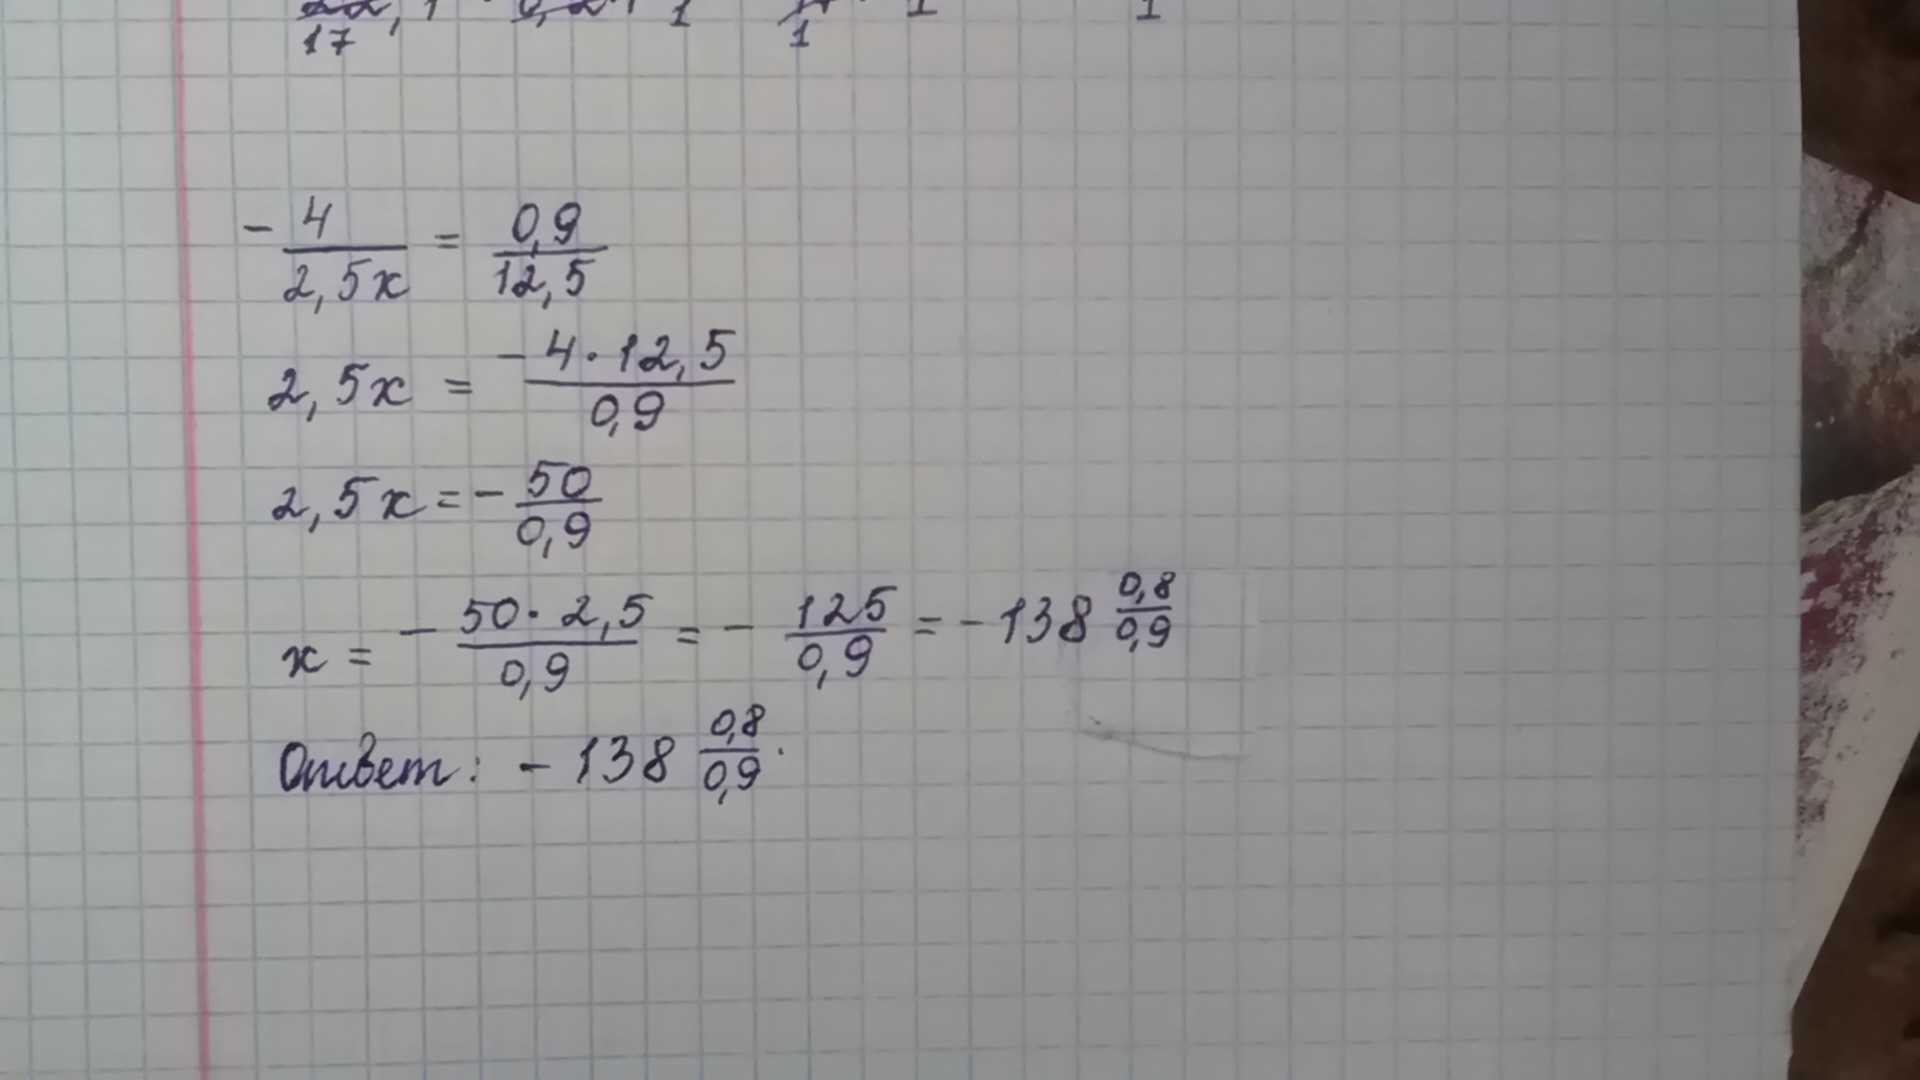 17 1 1 1
- 4/2,5x = 0,9/12,5
2,5x = -4·12,5/0,9
2,5x = - 50/0,9
x = - 50·2,5/0,9 = - 125/0,9 = - 138 0,8/0,9
Ответ: - 138 0,8/0,9.